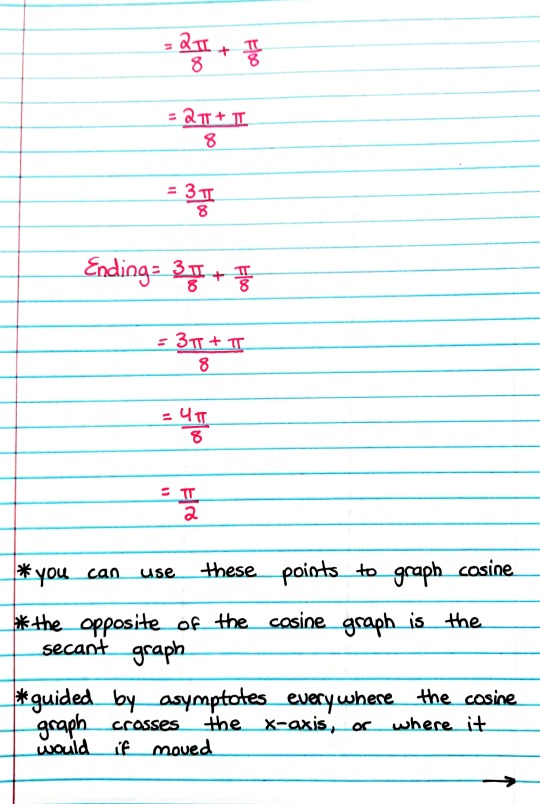 = 2π/8 + π/8
= 2π + π/8
= 3π/8
Ending = 3π/8 + π/8
= 3π + π/8
= 4π/8
= π/2
*you can use these points to graph cosine
*the opposite of the cosine graph is the
secant graph
*guided by asymptotes everywhere the cosine
graph crosses the x-axis, or where it
would if moved
→